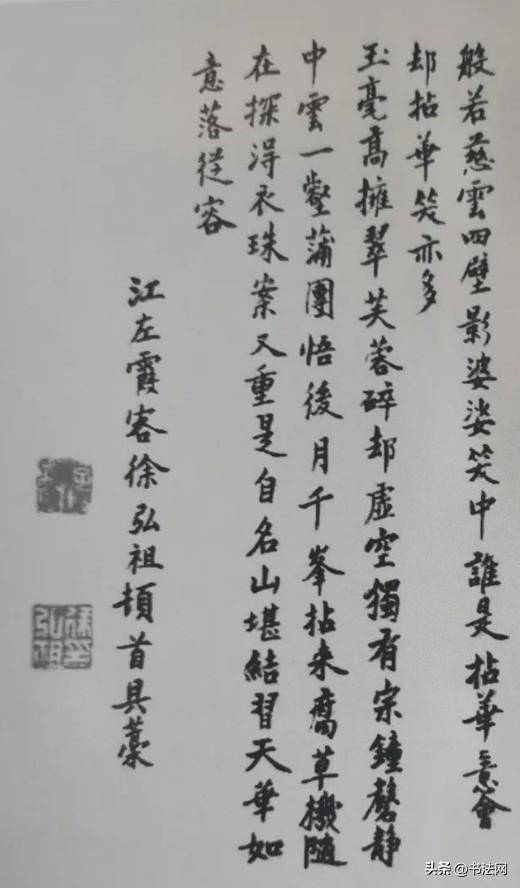 般若慈雲四壁影婆娑笑中誰是拈華意會
却拈華笑亦多
玉毫高擁翠芙蓉碎却虛空獨有宗鐘磬静
中雲一壑蒲團悟後月千峯拈来腐草機随
在探淂衣珠案又重是自名山堪結習天華如
意落從容
江左霞客徐弘祖頓首具藁
头条 @书法网